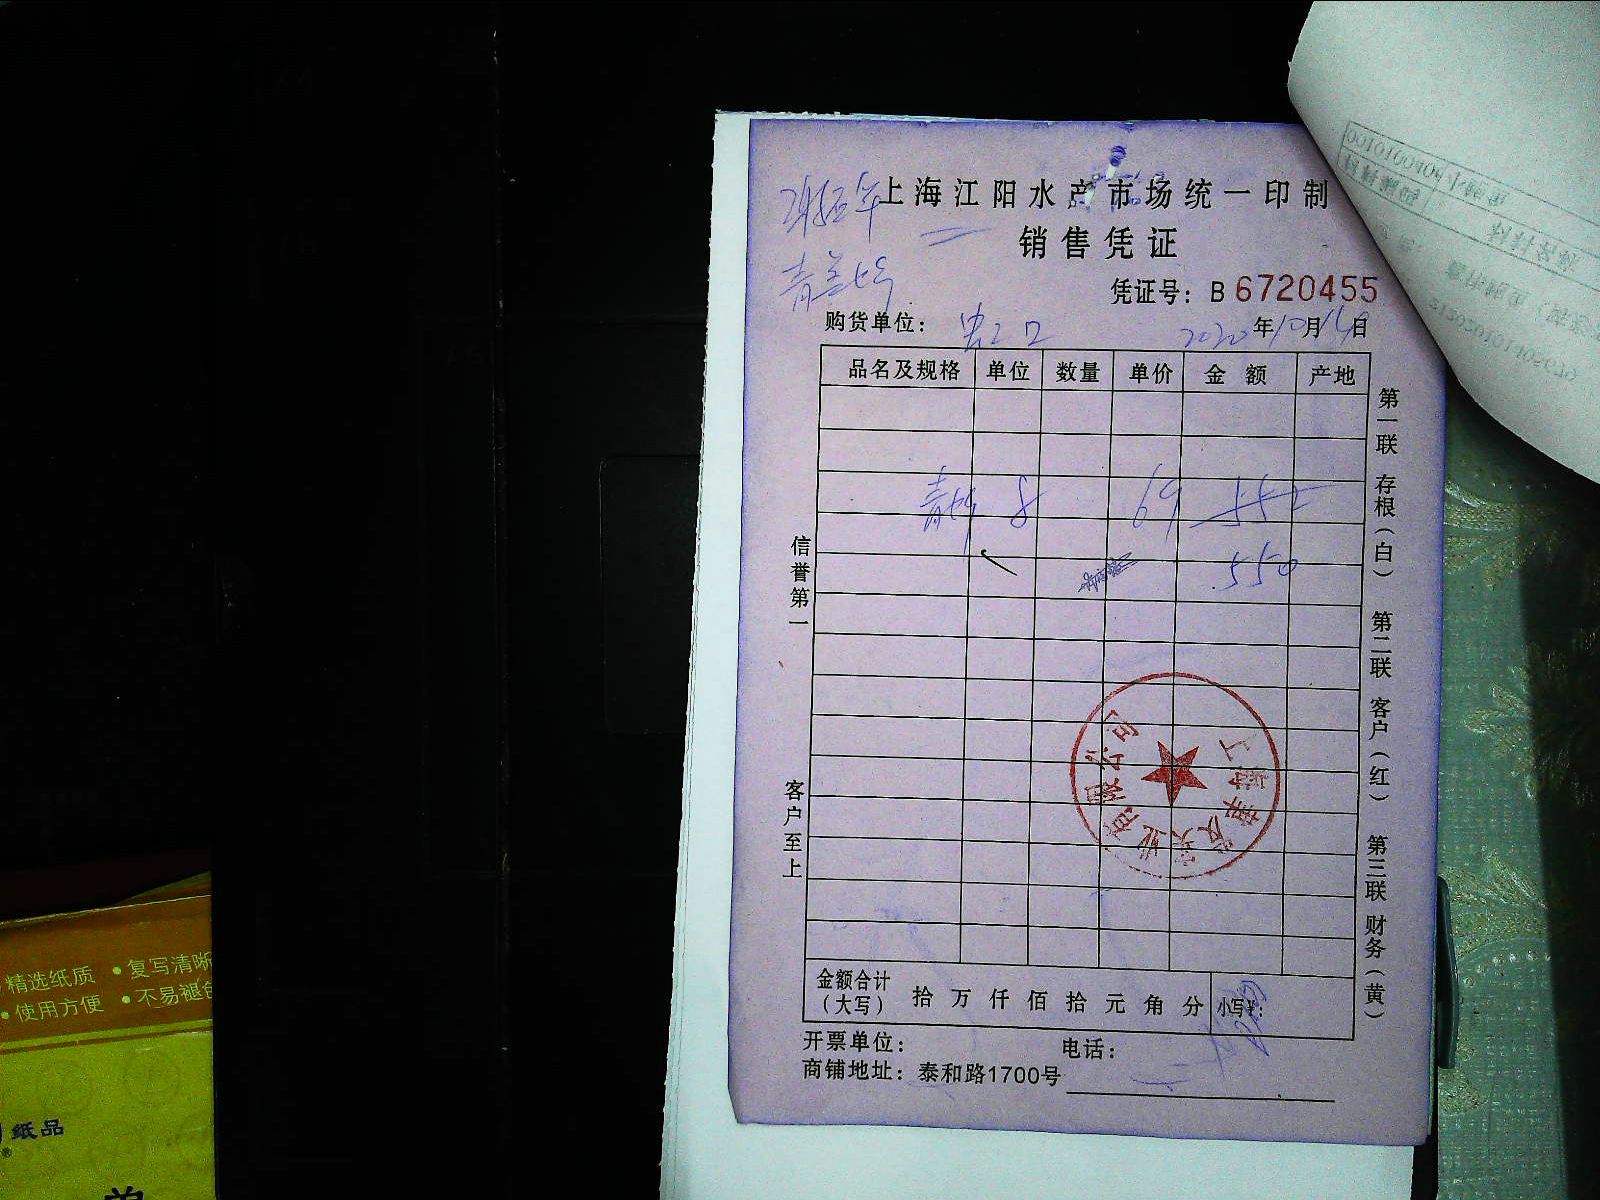 上海江阳水产市场统一印制
销售凭证
凭证号：B 6720455
购货单位： 2020年10月14日
品名及规格 单位 数量 单价 金额 产地
8 69 552
550
信誉第一
客户至上
第一联 存根（白） 第二联 客户（红） 第三联 财务（黄）
有限公司
金额合计
（大写） 拾 万 仟 佰 拾 元 角 分 小写¥：
开票单位： 电话：
商铺地址：泰和路1700号
精选纸质 •复写清晰
•使用方便 •不易褪色
纸品